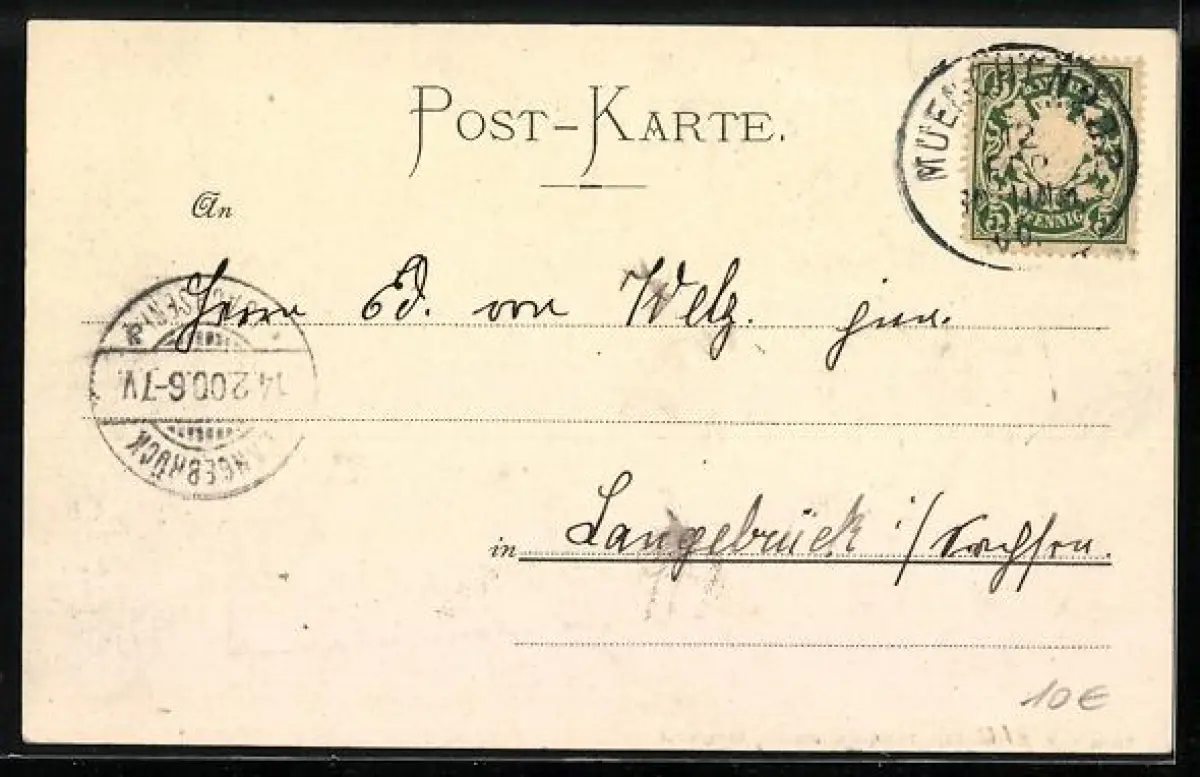 POST-KARTE.
MUENCHEN B.P.
12
PFENNIG
5 5
An
Herrn Ed. von Welz. jun.
14.2.00.6-7V.
LANGEBRÜCK
in Langebrück i/Sachsen.
10€